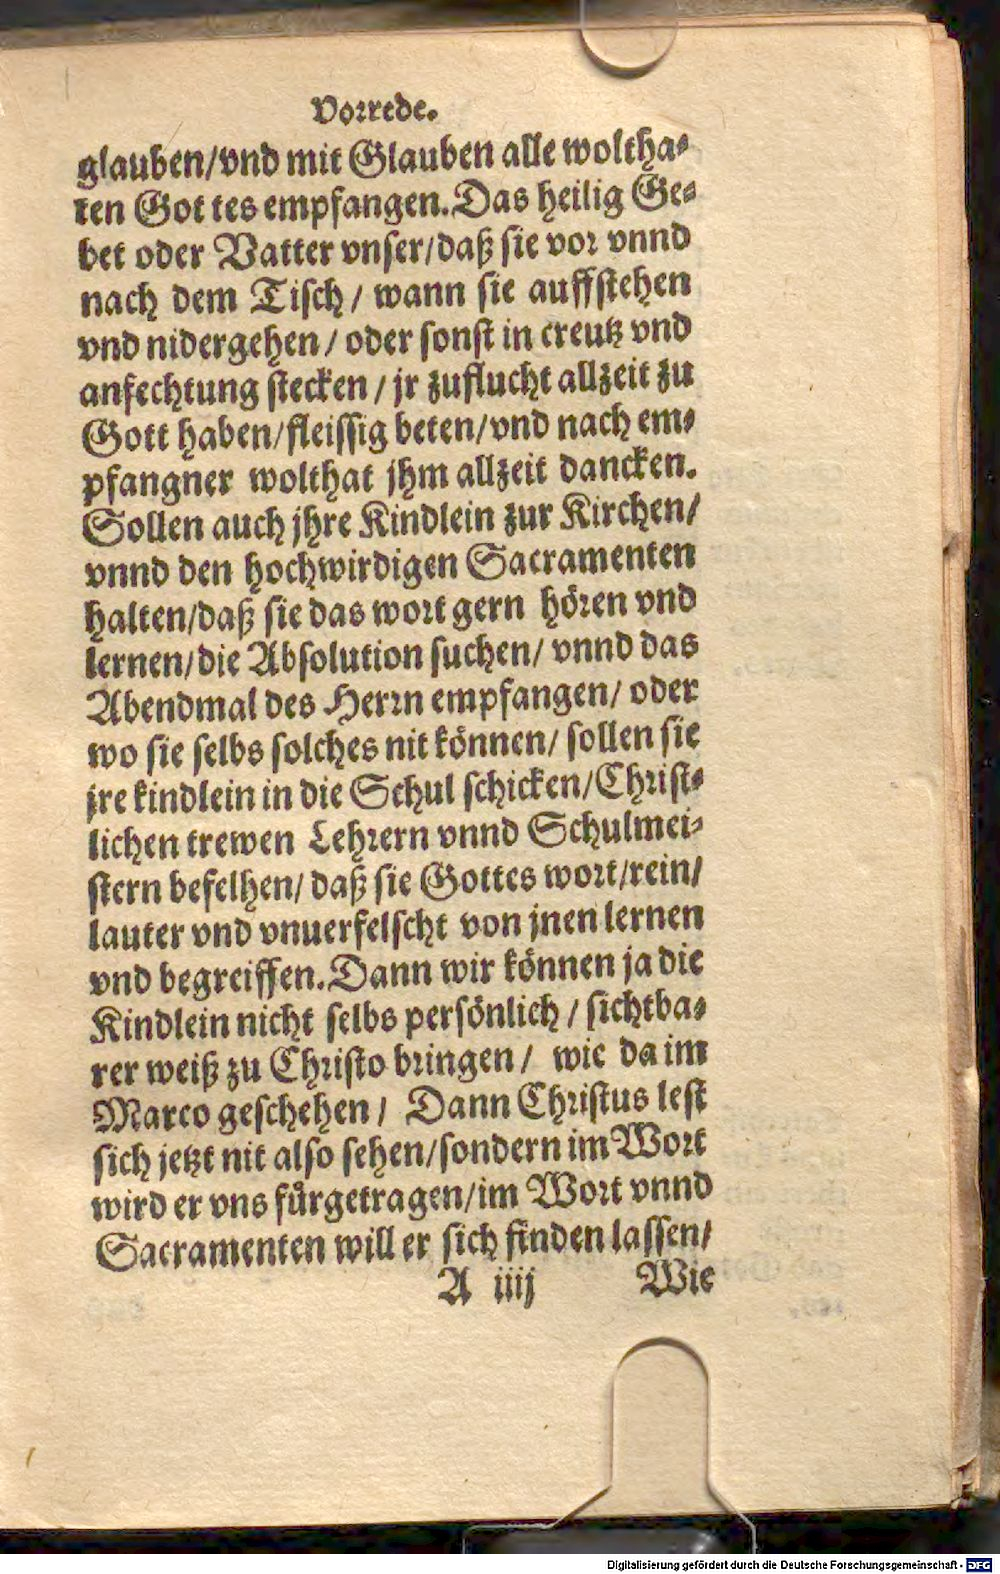 Vorrede.
glauben/vnd mit Glauben alle woltha-
ten Got tes empfangen. Das heilig Ge-
bet oder Vatter vnser/daß sie vor vnnd
nach dem Tisch/ wann sie auffstehen
vnd nidergehen/ oder sonst in creutz vnd
anfechtung stecken/ jr zuflucht allzeit zu
Gott haben/fleissig beten/vnd nach em-
pfangner wolthat jhm allzeit dancken.
Sollen auch jhre Kindlein zur Kirchen/
vnnd den hochwirdigen Sacramenten
halten/daß sie das wort gern hören vnd
lernen/die Absolution suchen/ vnnd das
Abendmal des Herrn empfangen/ oder
wo sie selbs solches nit können/ sollen sie
jre kindlein in die Schul schicken/Christ-
lichen trewen Lehrern vnnd Schulmei-
stern befelhen/ daß sie Gottes wort/rein/
lauter vnd vnuerfelscht von jnen lernen
vnd begreiffen. Dann wir können ja die
Kindlein nicht selbs persönlich/ sichtba-
rer weiß zu Christo bringen/ wie da im
Marco geschehen/ Dann Christus lest
sich jetzt nit also sehen/sondern im Wort
wird er vns fürgetragen/im Wort vnnd
Sacramenten will er sich finden lassen/
A iiij Wie
Digitalisierung gefördert durch die Deutsche Forschungsgemeinschaft - DFG